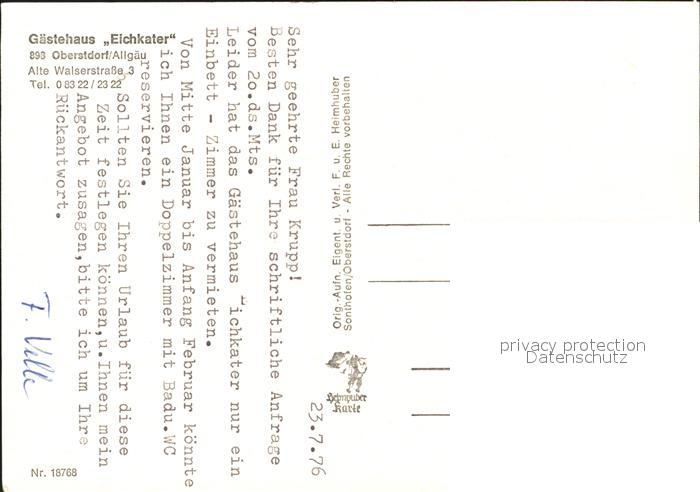 Gästehaus „Eichkater"
898 Oberstdorf/Allgäu
Alte Walserstraße 3
Tel. 0 83 22 / 23 22
23.7.76
Sehr geehrte Frau Krupp!
Besten Dank für Ihre schriftliche Anfrage
vom 2o.ds.Mts.
Leider hat das Gästehaus "ichkater nur ein
Einbett - Zimmer zu vermieten.
Von Mitte Januar bis Anfang Februar könnte
ich Ihnen ein Doppelzimmer mit Badu.WC
reservieren.
Sollten Sie Ihren Urlaub für diese
Zeit festlegen können,u.Ihnen mein
Angebot zusagen,bitte ich um Ihre
Rückantwort.
Orig.-Aufn. Eigent. u. Verl. F. u. E. Heimhuber
Sonthofen/Oberstdorf - Alle Rechte vorbehalten
Heimhuber
Karte
privacy protection
Datenschutz
Nr. 18768